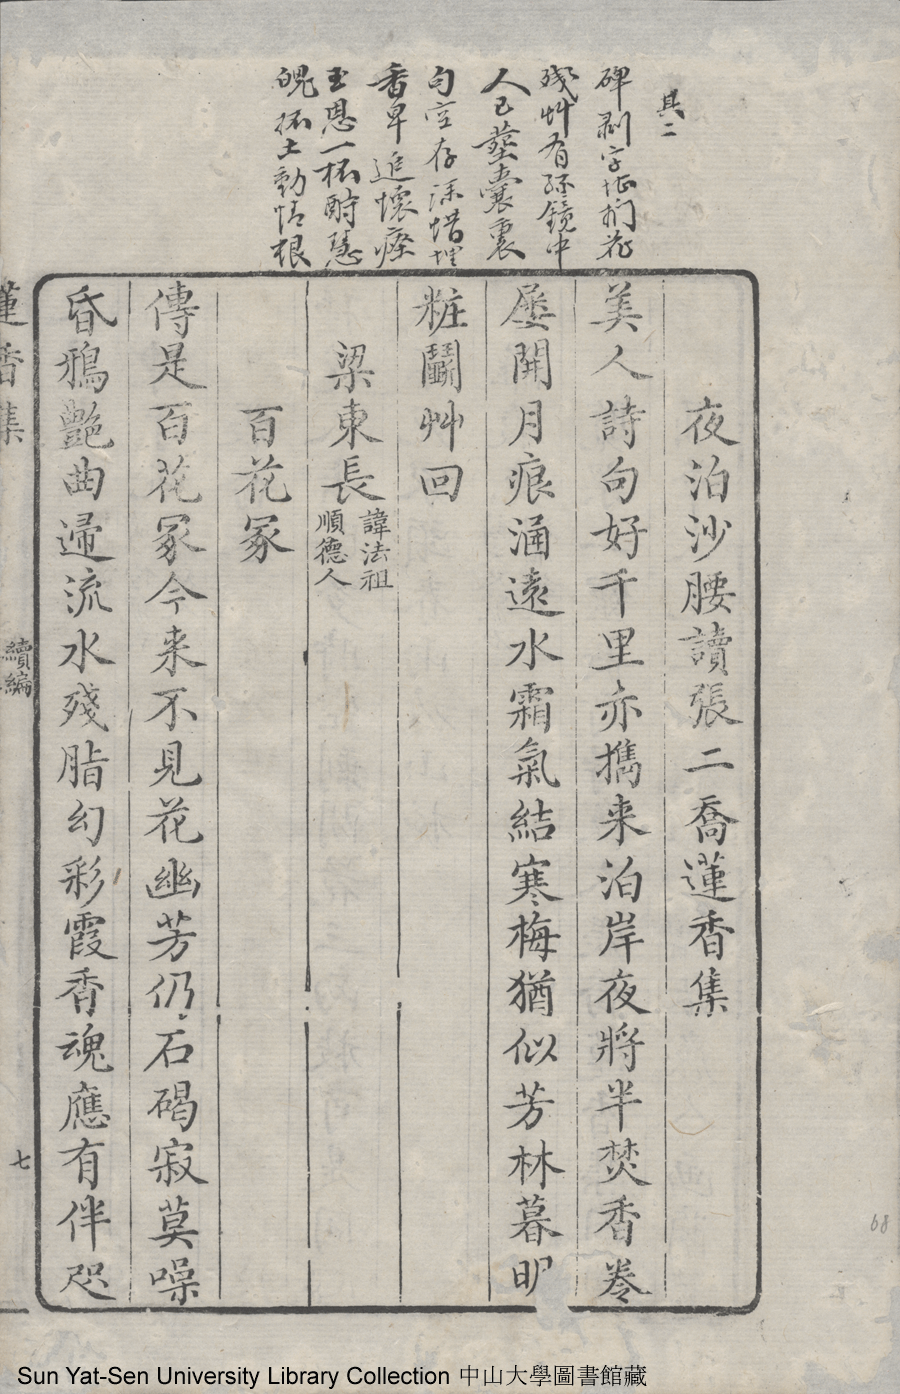 其二
碑剥字
殘艸有 鏡中
人已 囊裏
句空存深惜埋
香早追懷瘞
玉恩一杯酹慧
魄 土動情根
夜泊沙腰讀張二喬蓮香集
美人詩句好千里亦攜来泊岸夜將半焚香卷
屡開月痕涵遠水霜氣結寒梅猶似芳林暮明
粧鬭艸回
梁東長
諱法祖
順德人
百花冢
傳是百花冢今来不見花幽芳仍石碣寂莫噪
昏鴉艶曲歸流水殘脂幻彩霞香魂應有伴咫
蓮香集
續編
七
68
Sun Yat-Sen University Library Collection 中山大學圖書館藏